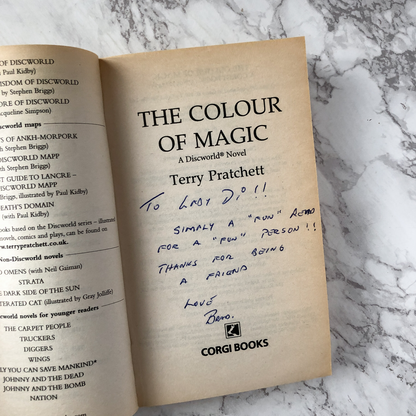 OF DISCWORLD
Paul Kidby)
ISDOM OF DISCWORLD
by Stephen Briggs)
ORE OF DISCWORLD
acqueline Simpson)
scworld maps
S OF ANKH-MORPORK
h Stephen Briggs)
DISCWORLD MAPP
h Stephen Briggs)
T GUIDE TO LANCRE –
DISCWORLD MAPP
Briggs, illustrated by Paul Kidby)
EATH'S DOMAIN
(with Paul Kidby)
ooks based on the Discworld series – illustrated
novels, comics and plays, can be found on
www.terrypratchett.co.uk.
Non-Discworld novels
D OMENS (with Neil Gaiman)
STRATA
E DARK SIDE OF THE SUN
TERATED CAT (illustrated by Gray Jolliffe)
world novels for younger readers
THE CARPET PEOPLE
TRUCKERS
DIGGERS
WINGS
LY YOU CAN SAVE MANKIND*
JOHNNY AND THE DEAD
JOHNNY AND THE BOMB
NATION
THE COLOUR
OF MAGIC
A Discworld® Novel
Terry Pratchett
TO LADY DI!!
SIMPLY A "FUN" READ
FOR A "FUN" PERSON!!
THANKS FOR BEING
A FRIEND
LOVE
CORGI BOOKS